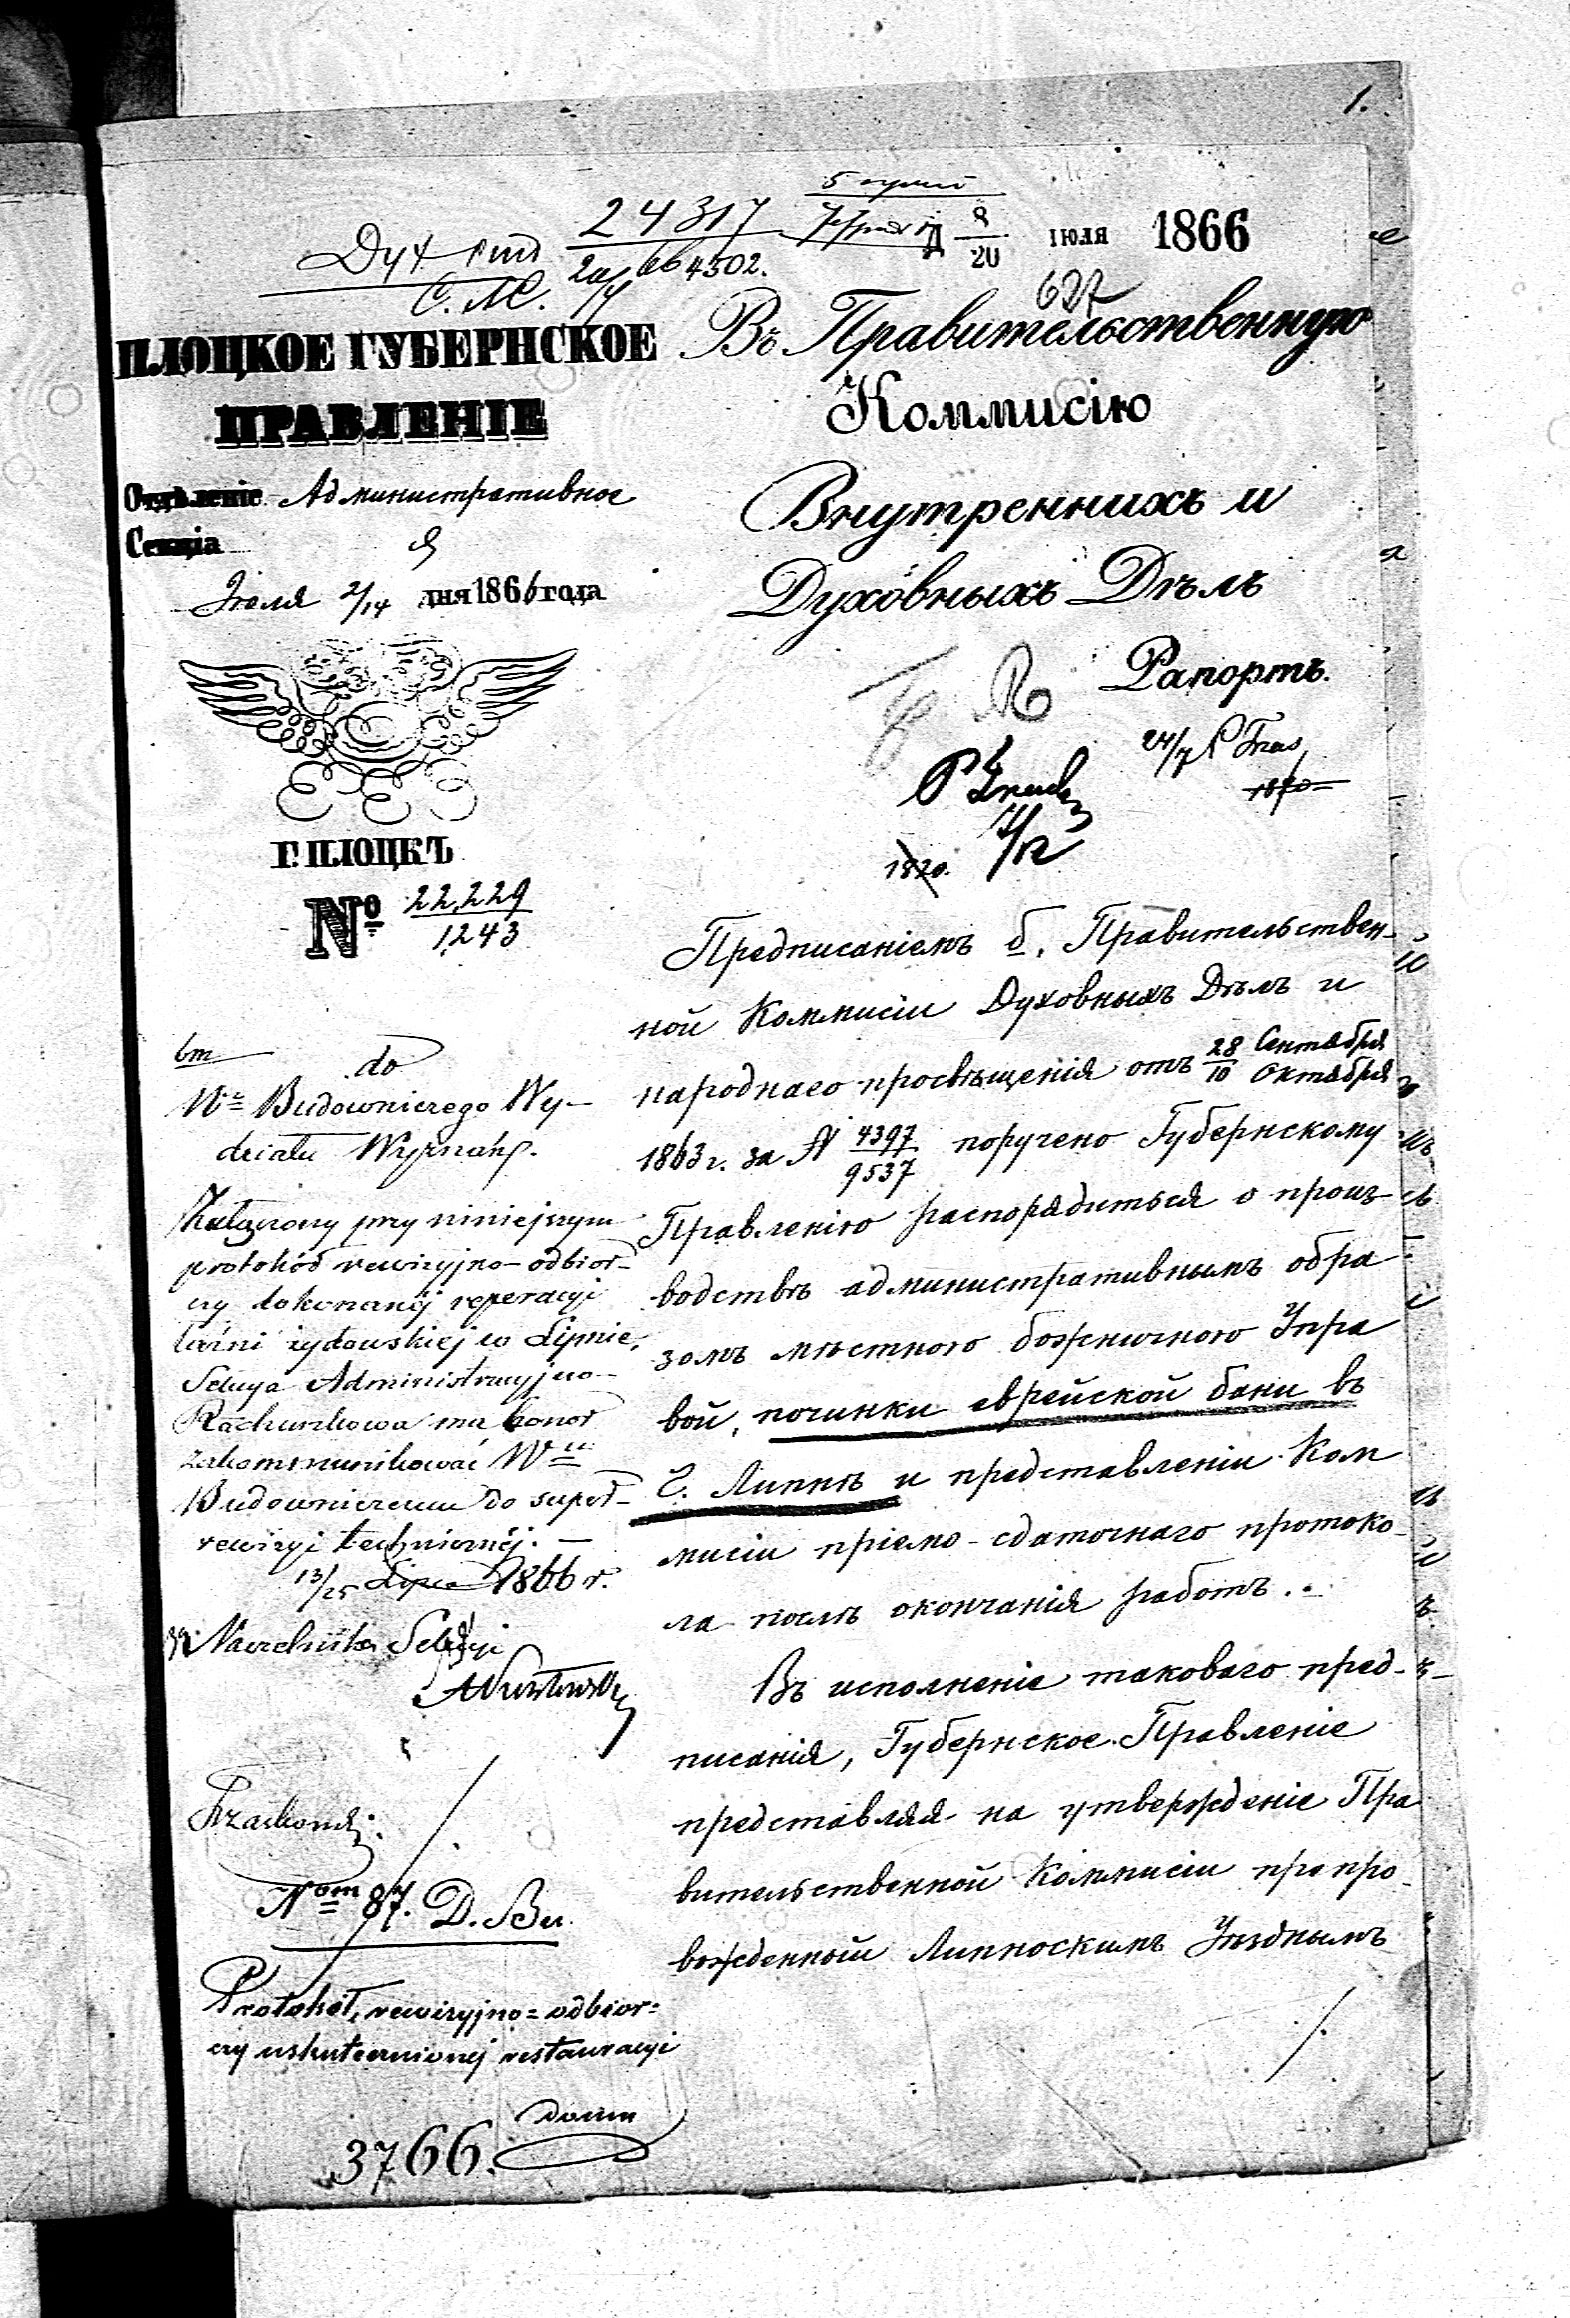 1.
24317
Д 8/20 ІЮЛЯ 1866
С. М.
4502.
627
ПЛОЦКОЕ ГУБЕРНСКОЕ
ПРАВЛЕНІЕ
Отдѣленіе Административное
Секція
Іюля 2/14 дня 1866 года
Г. ПЛОЦКЪ
№ 22,229
1243
Въ Правительственную
Коммисію
Внутреннихъ и
Духовныхъ Дѣлъ
Рапортъ.
24/7
1820
1820.
Предписаніемъ б. Правительствен-
ной Коммисіи Духовныхъ Дѣлъ и
народнаго просвѣщенія отъ 28 Сентября / 10 Октября
1863 г. за N 4397/9537 поручено Губернскому
Правленію распорядиться о произ-
водствѣ административнымъ обра
зомъ мѣстного божничного Упра
вой, починки еврейской бани въ
г. Липнѣ и представленіи Ком
мисіи пріемо-сдаточнаго протоко-
ла послѣ окончанія работъ.
Въ исполненіе таковаго пред-
писанія, Губернское Правленіе
представляя на утвержденіе Пра
вительственной Коммисіи препро-
вожденный Липноскимъ Уѣзднымъ
./.
do
Wo Budowniczego Wy-
działu Wyznań.
Załączony przy niniejszym
protokół rewizyjno-odbior-
czy dokonanéj reperacyi
łaźni żydowskiej w Lipnie,
Sekcya Administracyjno-
Rachunkowa ma honor
zakommunikować Wmu
Budowniczemu do super-
rewizyi technicznéj. —
13/25 Lipca 1866 r.
Naczelnik Sekcyi
Nom 87. D. Bu.
Protokół, rewizyjno=odbior=
czy uskutecznionej restauracyi
3766.